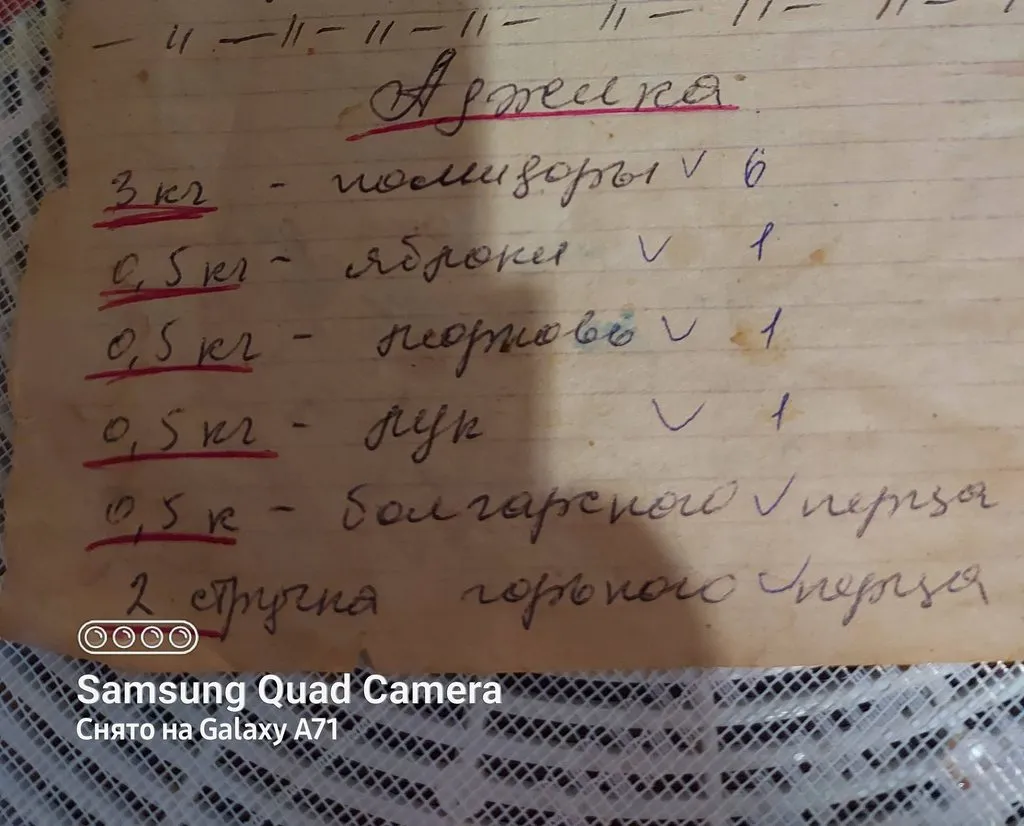 — 11 — 11 — 11 — 11 — 11 — 11 — 11 —
Аджика
3 кг - помидоры V 6
0,5 кг - яблоки V 1
0,5 кг - морковь V 1
0,5 кг - лук V 1
0,5 к - болгарского V перца
2 стручка горького V перца
Samsung Quad Camera
Снято на Galaxy A71